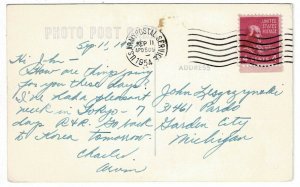 PHOTO POST
Sep 11, 19
Hi John –
How are things going
for you these days?
I've had a pleasant
week in Tokyo – 7
day R&R. Go back
to Korea tomorrow.
Charlie
U.S. ARMY POSTAL SERVICE
SEP 11
1954
UNITED STATES
ADDRESS
John
31461 Pardo
Garden City
Michigan